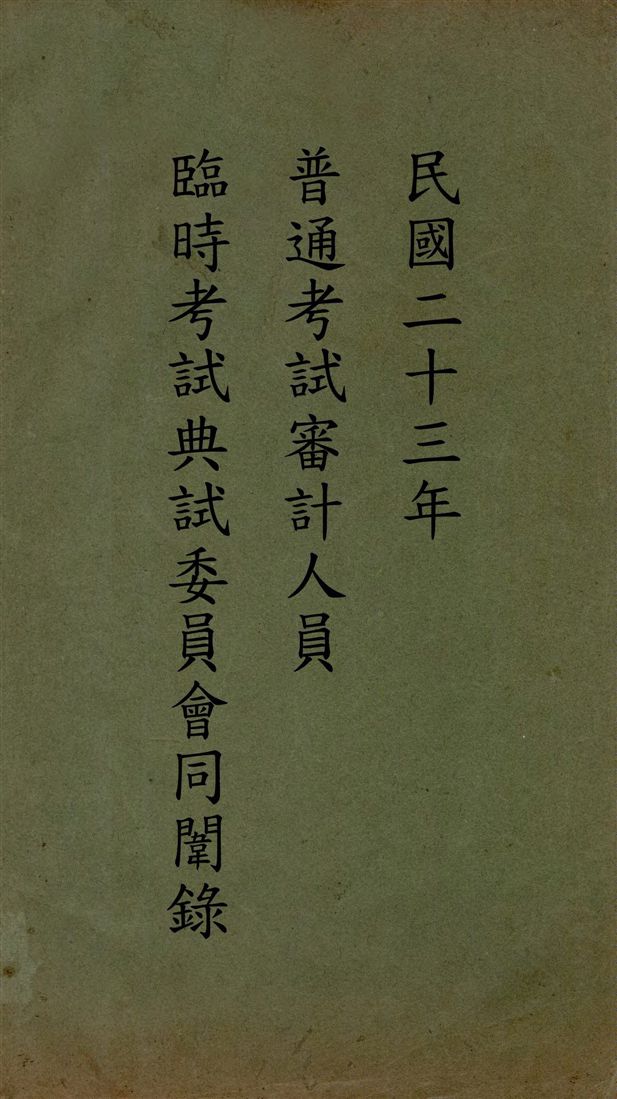 民國二十三年
普通考試審計人員
臨時考試典試委員會同闈錄